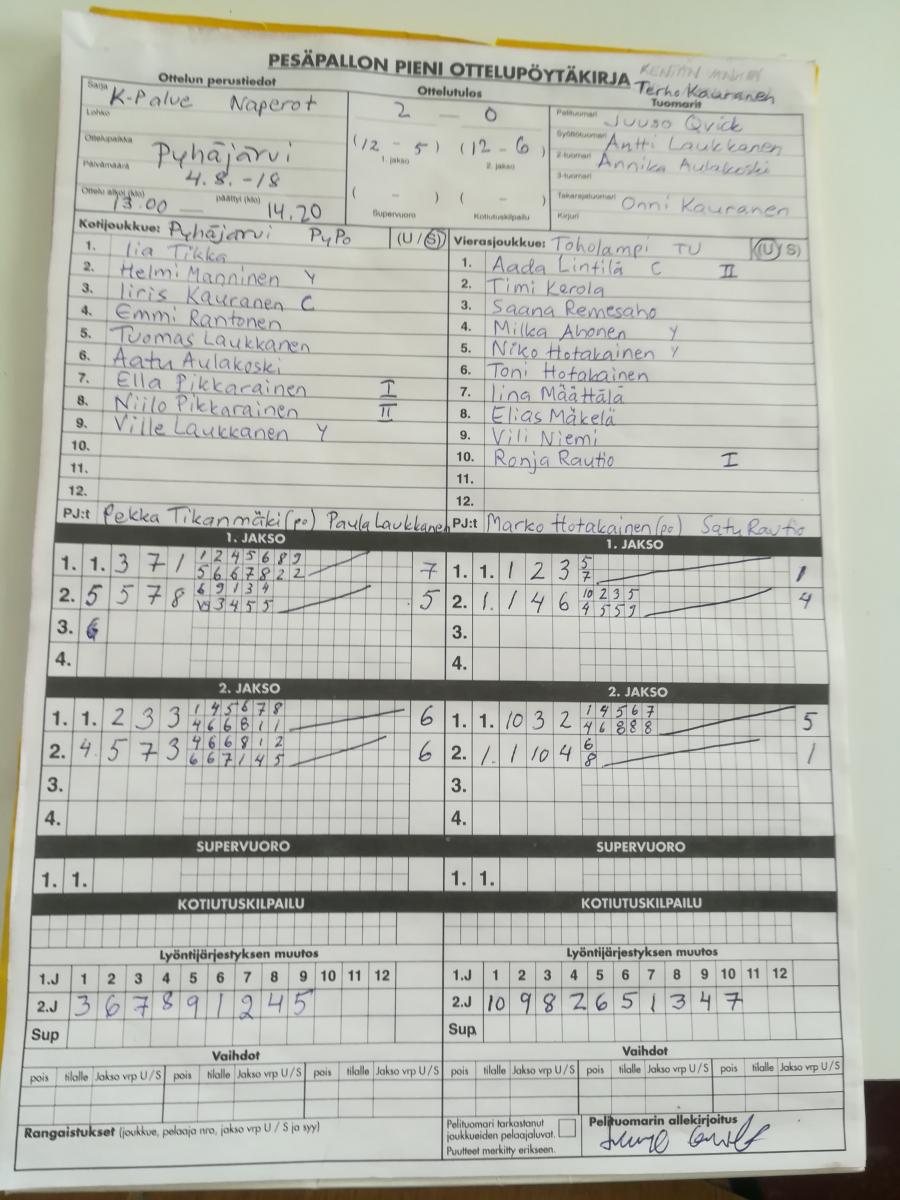 PESÄPALLON PIENI OTTELUPÖYTÄKIRJA
Terho Kauranen
Ottelun perustiedot
Ottelutulos
Tuomarit
Sarja K-Palve Naperot
Lohko
Ottelupaikka Pyhäjärvi
Päivämäärä 4.8.-18
Ottelu alkoi (klo) 13.00 — päättyi (klo) 14.20
2 — 0
(12 - 5) (12 - 6)
1. jakso 2. jakso
( - ) ( - )
Supervuoro Kotiutuskilpailu
Pelituomari Juuso Qvick
Syöttötuomari Antti Laukkanen
2-tuomari Annika Aulakoski
3-tuomari
Takarajatuomari
Kirjuri Onni Kauranen
Kotijoukkue: Pyhäjärvi PyPo (U / S)
1. Iia Tikka
2. Helmi Manninen Y
3. Iiris Kauranen C
4. Emmi Rantonen
5. Tuomas Laukkanen
6. Aatu Aulakoski
7. Ella Pikkarainen I
8. Niilo Pikkarainen II
9. Ville Laukkanen Y
10.
11.
12.
PJ:t Pekka Tikanmäki (po) Paula Laukkanen
Vierasjoukkue: Toholampi TU (U / S)
1. Aada Lintilä C II
2. Timi Kerola
3. Saana Remesaho
4. Milka Ahonen Y
5. Niko Hotakainen Y
6. Toni Hotakainen
7. Iina Määttälä
8. Elias Mäkelä
9. Vili Niemi
10. Ronja Rautio I
11.
12.
PJ:t Marko Hotakainen (po) Satu Rautio
1. JAKSO
1. 1. 3 7 1 1 2 4 5 6 8 9 7
5 6 6 7 8 2 2
2. 5 5 7 8 6 9 1 3 4 5
3 4 5 5
3.
4.
1. JAKSO
1. 1. 1 2 3 5 1
7
2. 1. 1 4 6 10 2 3 5 4
4 5 5 9
3.
4.
2. JAKSO
1. 1. 2 3 3 1 4 5 6 7 8 6
4 6 6 8 1 1
2. 4. 5 7 3 4 6 6 8 1 2 6
6 6 7 1 4 5
3.
4.
2. JAKSO
1. 1. 10 3 2 1 4 5 6 7 5
4 6 8 8 8
2. 1. 1 10 4 6 1
8
3.
4.
SUPERVUORO
1. 1.
SUPERVUORO
1. 1.
KOTIUTUSKILPAILU
KOTIUTUSKILPAILU
Lyöntijärjestyksen muutos
1.J 1 2 3 4 5 6 7 8 9 10 11 12
2.J 3 6 7 8 9 1 2 4 5
Sup
Lyöntijärjestyksen muutos
1.J 1 2 3 4 5 6 7 8 9 10 11 12
2.J 10 9 8 2 6 5 1 3 4 7
Sup.
Vaihdot
pois tilalle Jakso vrp U / S pois tilalle Jakso vrp U / S pois tilalle Jakso vrp U / S
Vaihdot
pois tilalle Jakso vrp U / S pois tilalle Jakso vrp U / S pois tilalle Jakso vrp U / S
Rangaistukset (joukkue, pelaaja nro, jakso vrp U / S ja syy)
Pelituomari tarkastanut
joukkueiden pelaajaluvat.
Puutteet merkitty erikseen.
Pelituomarin allekirjoitus